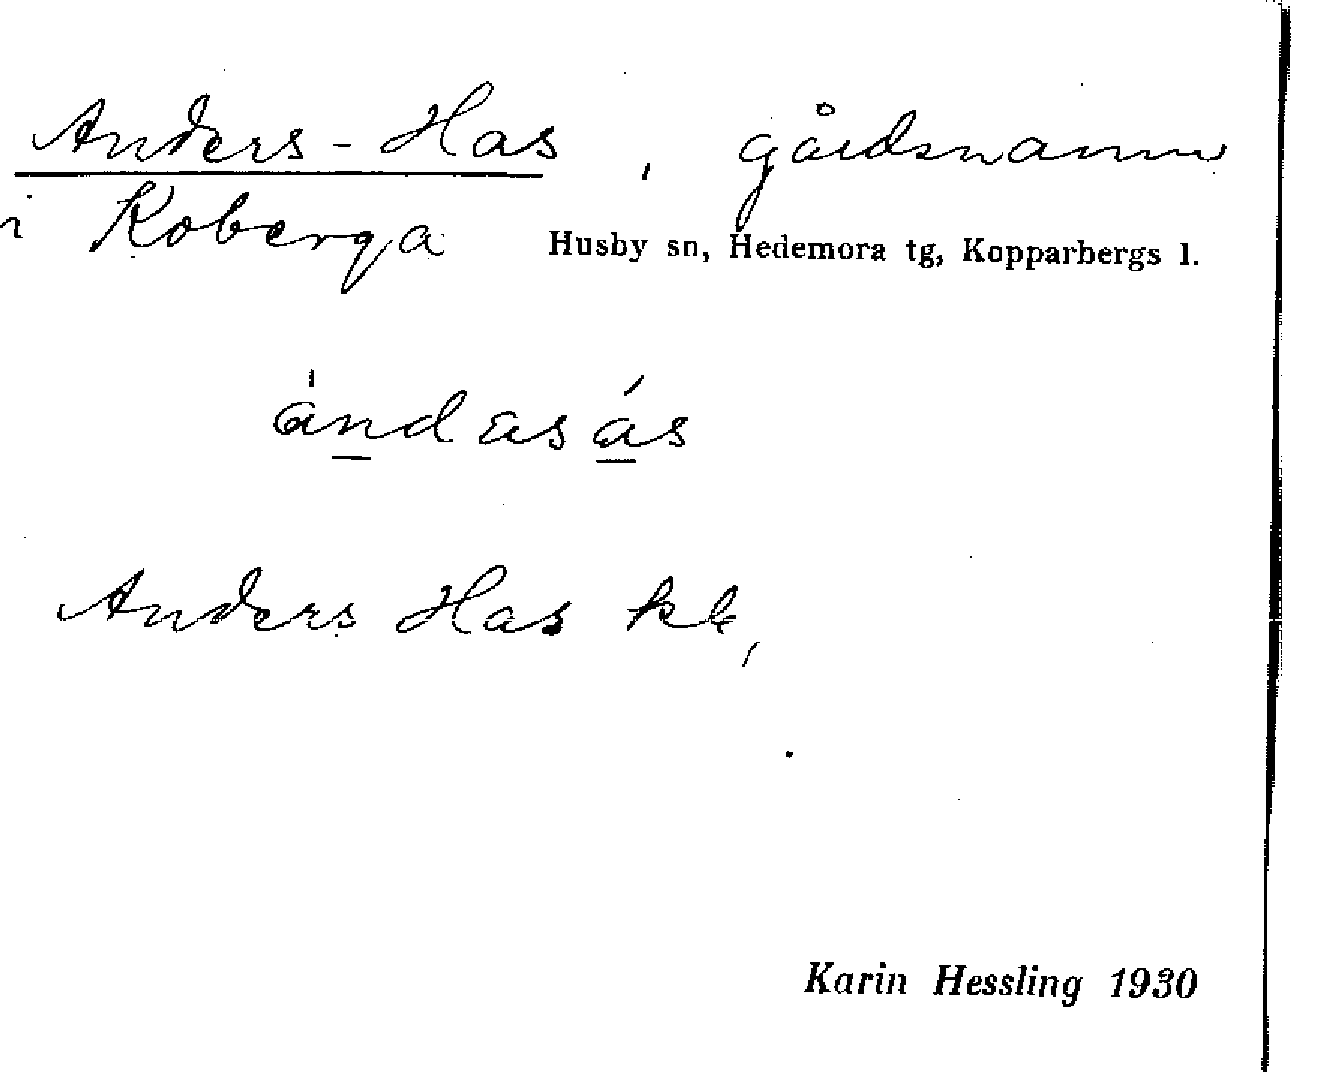 Anders-Has, gårdsnamn
i Koberga Husby sn, Hedemora tg, Kopparbergs l.
ándasás
Anders Has
Karin Hessling 1930